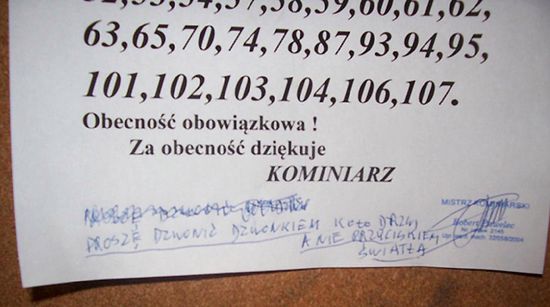 52,53,54,57,58,59,60,61,62,
63,65,70,74,78,87,93,94,95,
101,102,103,104,106,107.
Obecność obowiązkowa !
Za obecność dziękuje
KOMINIARZ
PROSZĘ DZWONIĆ DZWONKIEM KOŁO DRZWI
A NIE PRZYCISKIEM
ŚWIATŁA
MISTRZ KOMINIARSKI
Robert